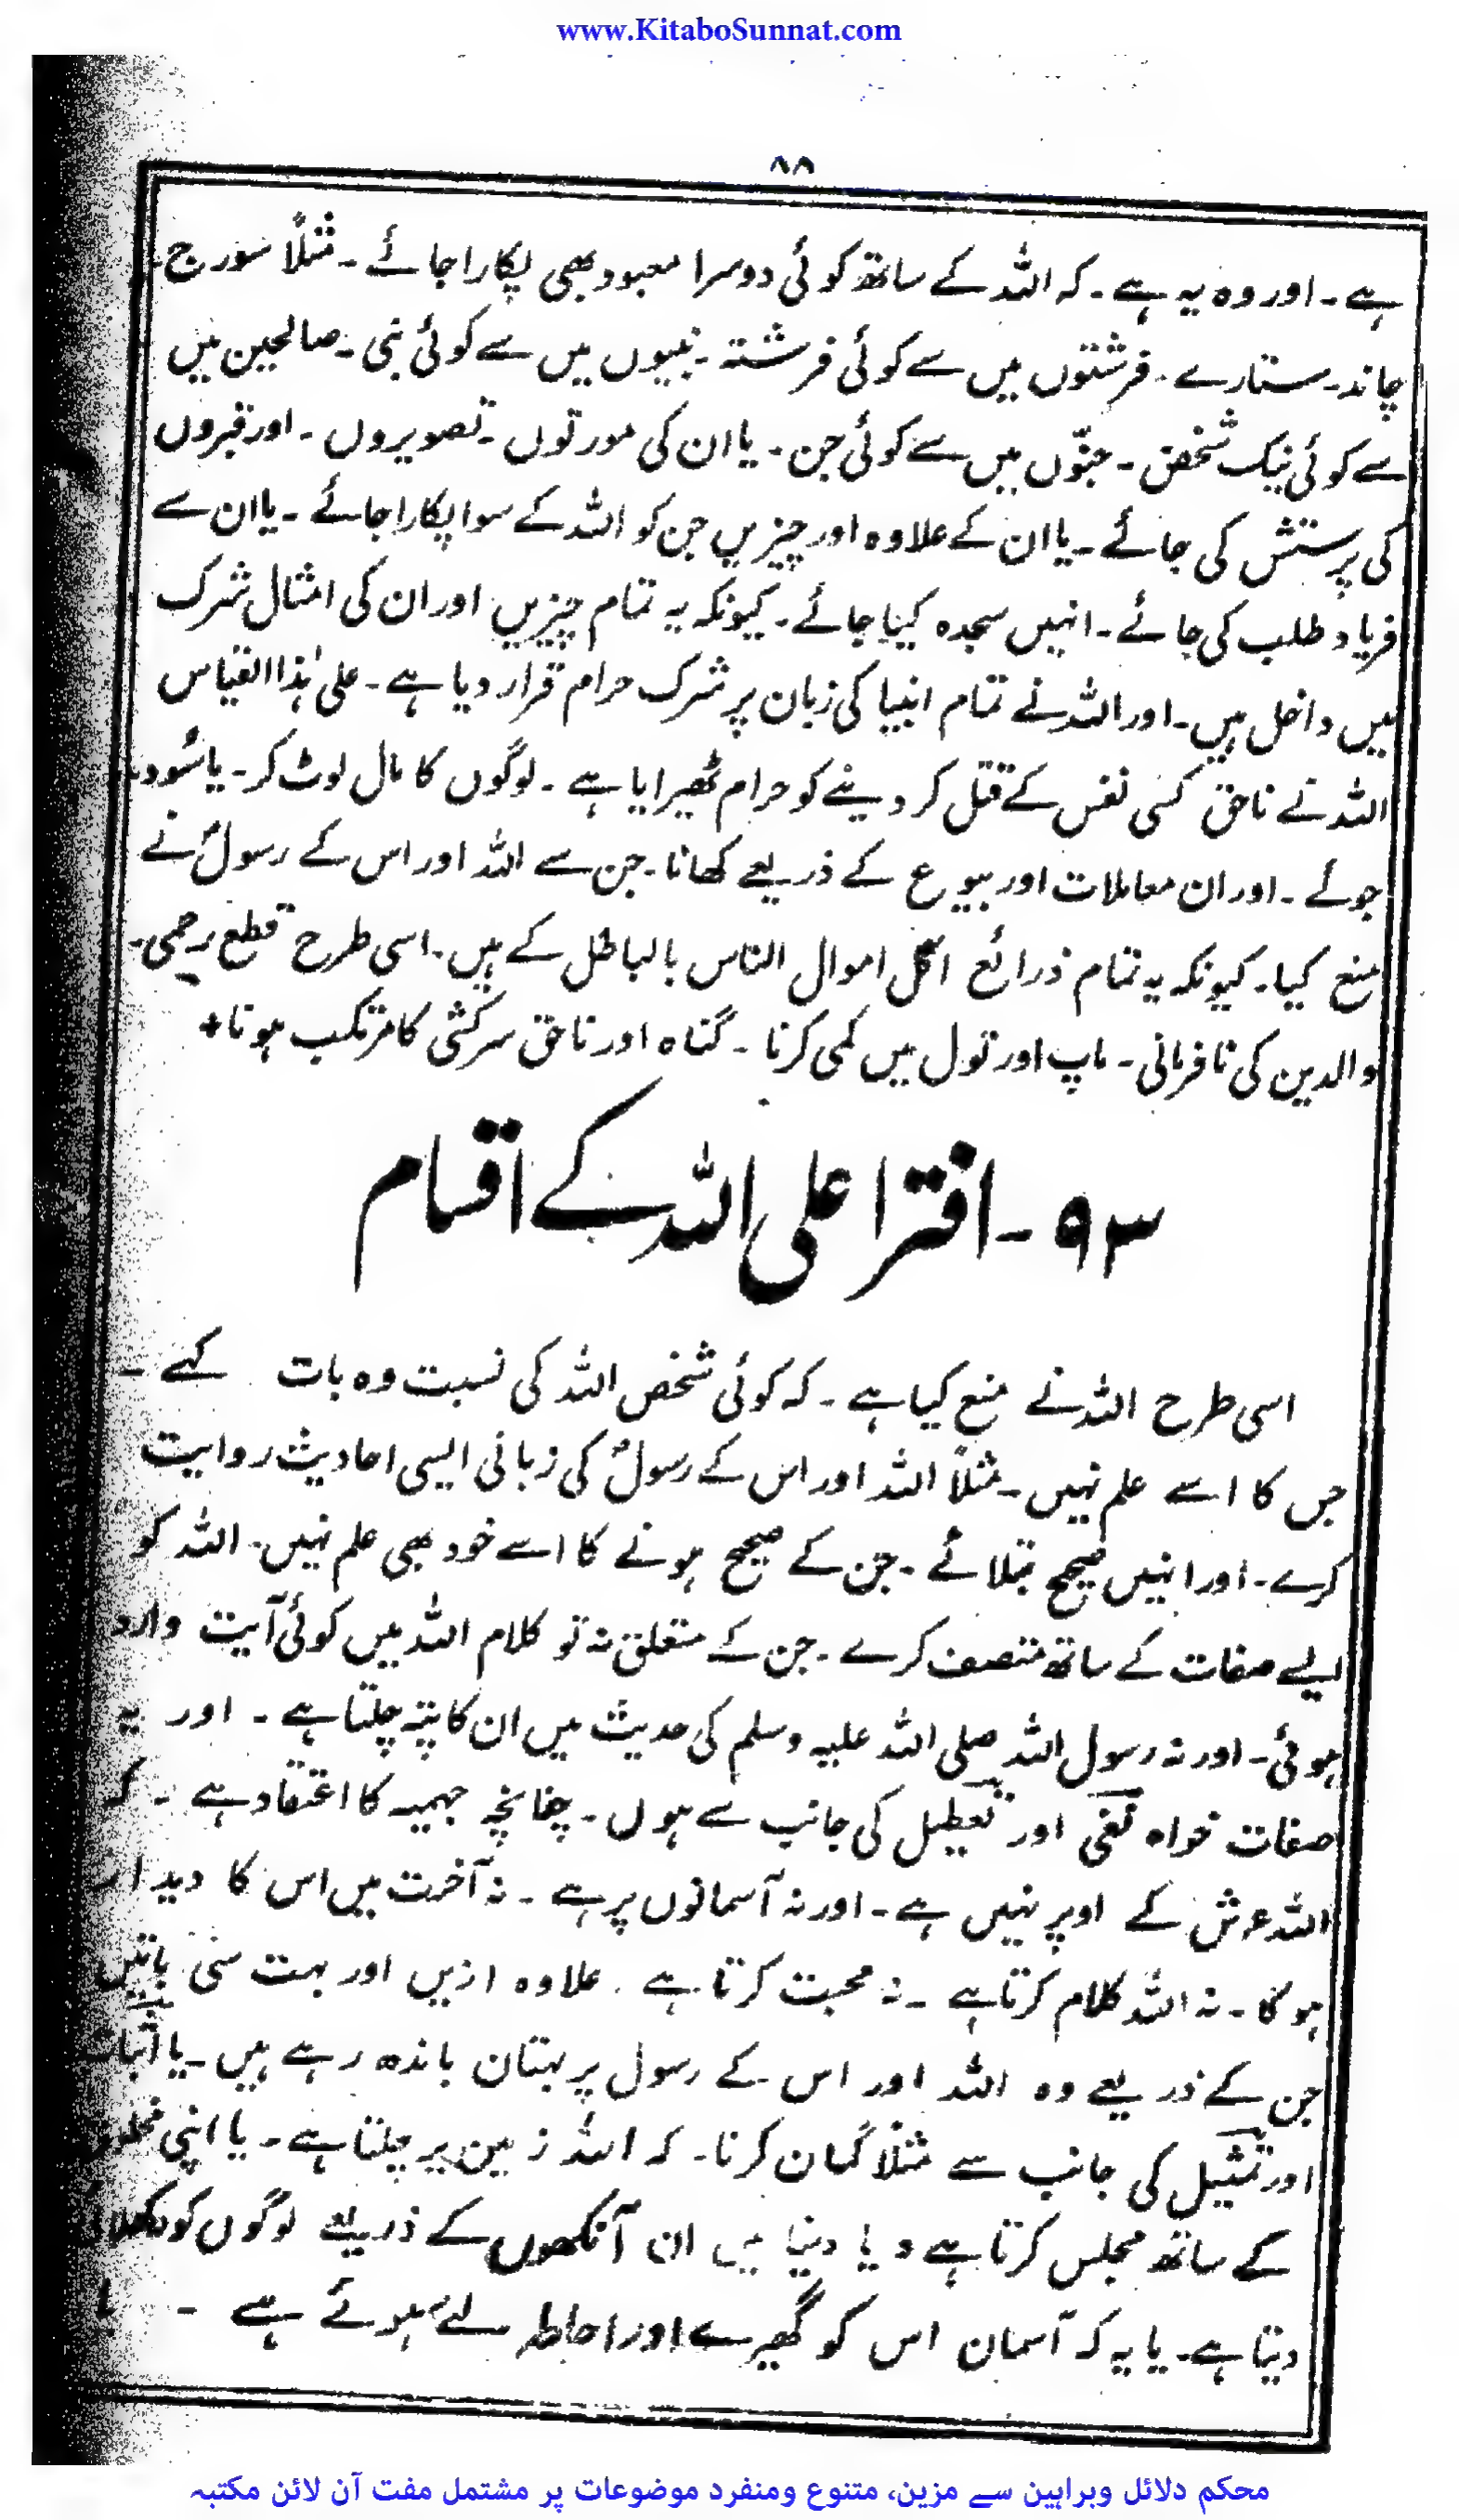 www.KitaboSunnat.com
۸۸
ہے۔ اور وہ یہ ہے۔ کہ اللہ کے ساتھ کوئی دوسرا معبود بھی پکارا جائے۔ مثلاً سورج۔
چاند۔ ستارے۔ فرشتوں میں سے کوئی فرشتہ۔ نبیوں میں سے کوئی نبی۔ صالحین میں
سے کوئی نیک شخص۔ جنّوں میں سے کوئی جن۔ یا ان کی مورتوں۔ تصویروں۔ اور قبروں
کی پرستش کی جائے۔ یا ان کے علاوہ اور چیزیں جن کو اللہ کے سوا پکارا جائے۔ یا ان سے
فریاد طلب کی جائے۔ انہیں سجدہ کیا جائے۔ کیونکہ یہ تمام چیزیں اور ان کی امثال شرک
میں داخل ہیں۔ اور اللہ نے تمام انبیا کی زبان پر شرک حرام قرار دیا ہے۔ علیٰ ہذا القیاس
اللہ نے ناحق کسی نفس کے قتل کر دینے کو حرام ٹھیرایا ہے۔ لوگوں کا مال لوٹ کر۔ یا سُود۔
جوئے۔ اور ان معاملات اور بیوع کے ذریعے کھانا۔ جن سے اللہ اور اس کے رسولؐ نے
منع کیا۔ کیونکہ یہ تمام ذرائع اکل اموال الناس بالباطل کے ہیں۔ اسی طرح قطع رحمی۔
والدین کی نافرمانی۔ ماپ اور تول میں کمی کرنا۔ گناہ اور ناحق سرکشی کا مرتکب ہونا+
۹۳۔ افترا علی اللہ کے اقسام
اسی طرح اللہ نے منع کیا ہے۔ کہ کوئی شخص اللہ کی نسبت وہ بات کہے۔
جس کا اسے علم نہیں۔ مثلاً اللہ اور اس کے رسولؐ کی زبانی ایسی احادیث روایت
کرے۔ اور انہیں صحیح بتلائے۔ جن کے صحیح ہونے کا اسے خود بھی علم نہیں۔ اللہ کو
ایسے صفات کے ساتھ متصف کرے۔ جن کے متعلق نہ تو کلام اللہ میں کوئی آیت وارد
ہوئی۔ اور نہ رسول اللہ صلی اللہ علیہ وسلم کی حدیث میں ان کا پتہ چلتا ہے۔ اور یہ
صفات خواہ نفی اور تعطیل کی جانب سے ہوں۔ چنانچہ جہمیہ کا اعتقاد ہے۔ کہ
اللہ عرش کے اوپر نہیں ہے۔ اور نہ آسمانوں پر ہے۔ نہ آخرت میں اس کا دیدار
ہوگا۔ نہ اللہ کلام کرتا ہے۔ نہ محبت کرتا ہے۔ علاوہ ازیں اور بہت سی باتیں
جن کے ذریعے وہ اللہ اور اس کے رسول پر بہتان باندھ رہے ہیں۔ یا اثبات
اور تمثیل کی جانب سے مثلاً گمان کرنا۔ کہ اللہ زمین پر چلتا ہے۔ یا اپنی
کے ساتھ مجلس کرتا ہے۔ یا دنیا میں ان آنکھوں کے ذریعے لوگوں کو دکھلائی
دیتا ہے۔ یا یہ کہ آسمان اس کو گھیرے اور احاطہ لئے ہوئے ہے۔ یا
محکم دلائل وبراہین سے مزین، متنوع ومنفرد موضوعات پر مشتمل مفت آن لائن مکتبہ